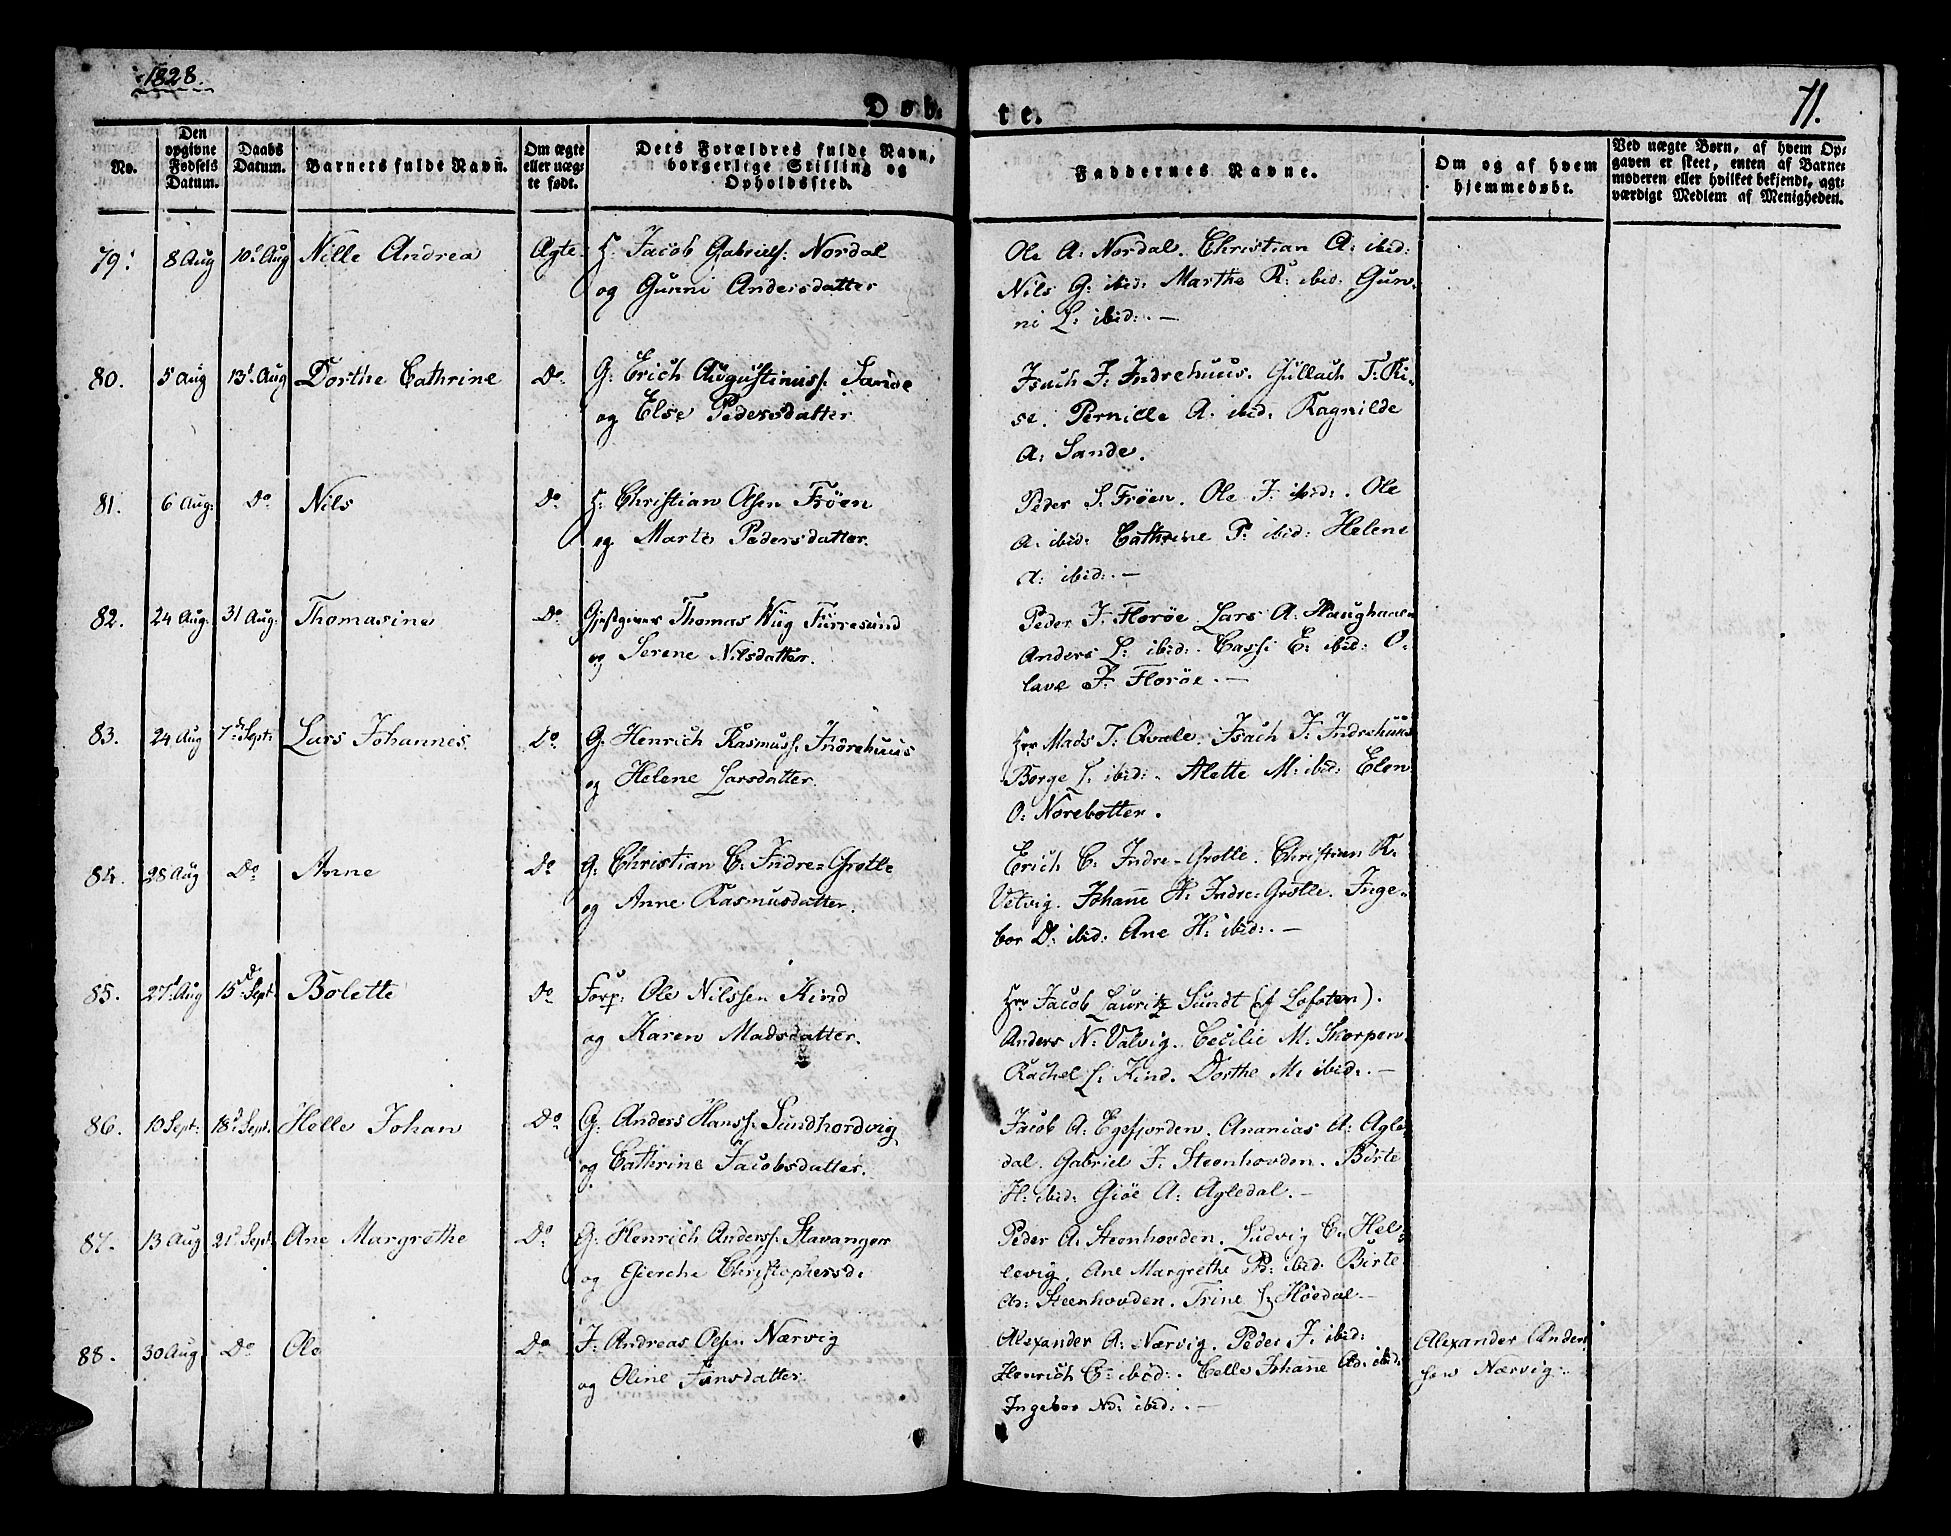 1828.
71.
Døb-
te.
No.
Den opgivne Fødsels Datum.
Daabs Datum.
Barnets fulde Navn.
Om ægte eller uægte født.
Dets Forældres fulde Navn, borgerlige Stilling og Opholdsted.
Faddernes Navne.
Om og af hvem hjemmedøbt.
Ved uægte Børn, af hvem Opgaven er skeet, enten af Barnemoderen eller hvilket bekjendt, agtværdigt Medlem af Menigheden.
79. 8 Aug 10d Aug Nille Andrea Ægte H: Jacob Gabriels: Nordal
og Gunni Andersdatter
Ole A: Nordal. Christian A: ibid:
Nils G: ibid: Marthe R: ibid: Gun-
ni L: ibid:. —
80. 5 Aug 13d Aug Dorthe Cathrine Do G: Erich Augustinuss: Sande
og Else Pedersdatter
Isach J: Indrehuus. Gullach T: Ri-
se. Pernille A: ibid: Ragnilde
A: Sande.
81. 6 Aug: Do Nils Do H: Christian Olsen Frøen
og Marte Pedersdatter.
Peder S: Frøen. Ole J: ibid:. Ole
A: ibid: Cathrine P: ibid: Helene
A: ibid:. —
82. 24 Aug: 31 Aug: Thomasine Do Gjestgiver Thomas Wüg Furresund
og Serene Nilsdatter.
Peder J: Florøe. Lars A: Haughaae-
Anders L: ibid:. Cassi E: ibid: O-
lave J: Florøe. —
83. 24 Aug 7d Sept: Lars Johannes Do G: Henrich Rasmuss: Indrehuus
og Helene Larsdatter.
Hrr Mads T: Qvale. Isach J: Indrehuus
Børge L: ibid:. Alette M: ibid: Elen
O: Norebotten.
84. 28 Aug Do Anne Do G: Christian C: Indre-Grotle
og Anne Rasmusdatter.
Erich C: Indre-Grotle. Christian R:
Vetvig. Johane H: Indre-Grotle. Inge-
bor D: ibid: Ane H: ibid:. —
85. 27d Aug 15d Sept Bolette Do Forp: Ole Nilssen Kind
og Karen Madsdatter.
Hrr Jacob Lauritz Sundt (af Lofoten).
Anders N: Valvig. Cecilie M: Skorpen.
Rachel L: Kind. Dorthe M: ibid:. —
86. 10 Sept: 18d Sept. Helle Johan Do G: Anders Hanss: Sundhordvig
og Cathrine Jacobsdatter.
Jacob A: Egefjorden. Ananias A: Agle-
dal. Gabriel J: Steenhovden. Birte
H: ibid: Giøe A: Agledal. —
87. 13 Aug 21d Sept. Ane Margrethe Do G: Henrich Anderss: Stavanger
og Gierche Christophersd:
Peder A: Steenhovden. Ludvig C: Hel-
levig. Ane Margrethe Pd: ibid: Birte
Ad: Steenhovden. Trine L: Høedal —
88. 30 Aug Do Ole Do J: Andreas Olsen Nærvig
og Oline Jensdatter
Alexander A: Nærvig. Peder J: ibid:
Henrich C: ibid:. Celle Johane Ad: ibid:
Ingebor Nd: ibid:. —
Alexander Ander-
sen Nærvig.